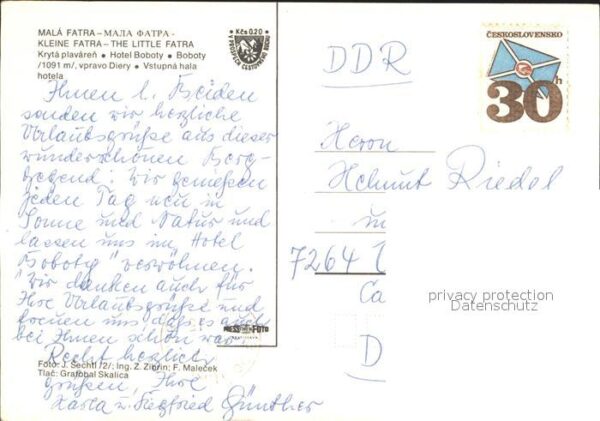 MALÁ FATRA – МАЛА ФАТРА –
KLEINE FATRA – THE LITTLE FATRA
Krytá plaváreň • Hotel Boboty • Boboty
/1091 m/, vpravo Diery • Vstupná hala
hotela
Kčs 0,20
V PROSPECH CESTOVNÉHO RUCHU
ČESKOSLOVENSKO
30 h
DDR
Ihnen l. Beiden
senden wir herzliche
Urlaubsgrüße aus dieser
wunderschönen Berg-
gegend. Wir genießen
jeden Tag neu in
Sonne und Natur und
lassen uns im Hotel
"Boboty" verwöhnen.
Wir danken auch für
Ihre Urlaubsgrüße und
freuen uns, daß es auch
bei Ihnen schön war.
Recht herzlich
grüßen, Ihre
Karla u. Siegfried Günther
Herrn
Helmut Riedel
in
7264
Ca
D
privacy protection
Datenschutz
PRESSFOTO
Foto: J. Šechtl /2/; Ing. Z. Zibrín; F. Maleček
Tlač: Grafobal Skalica